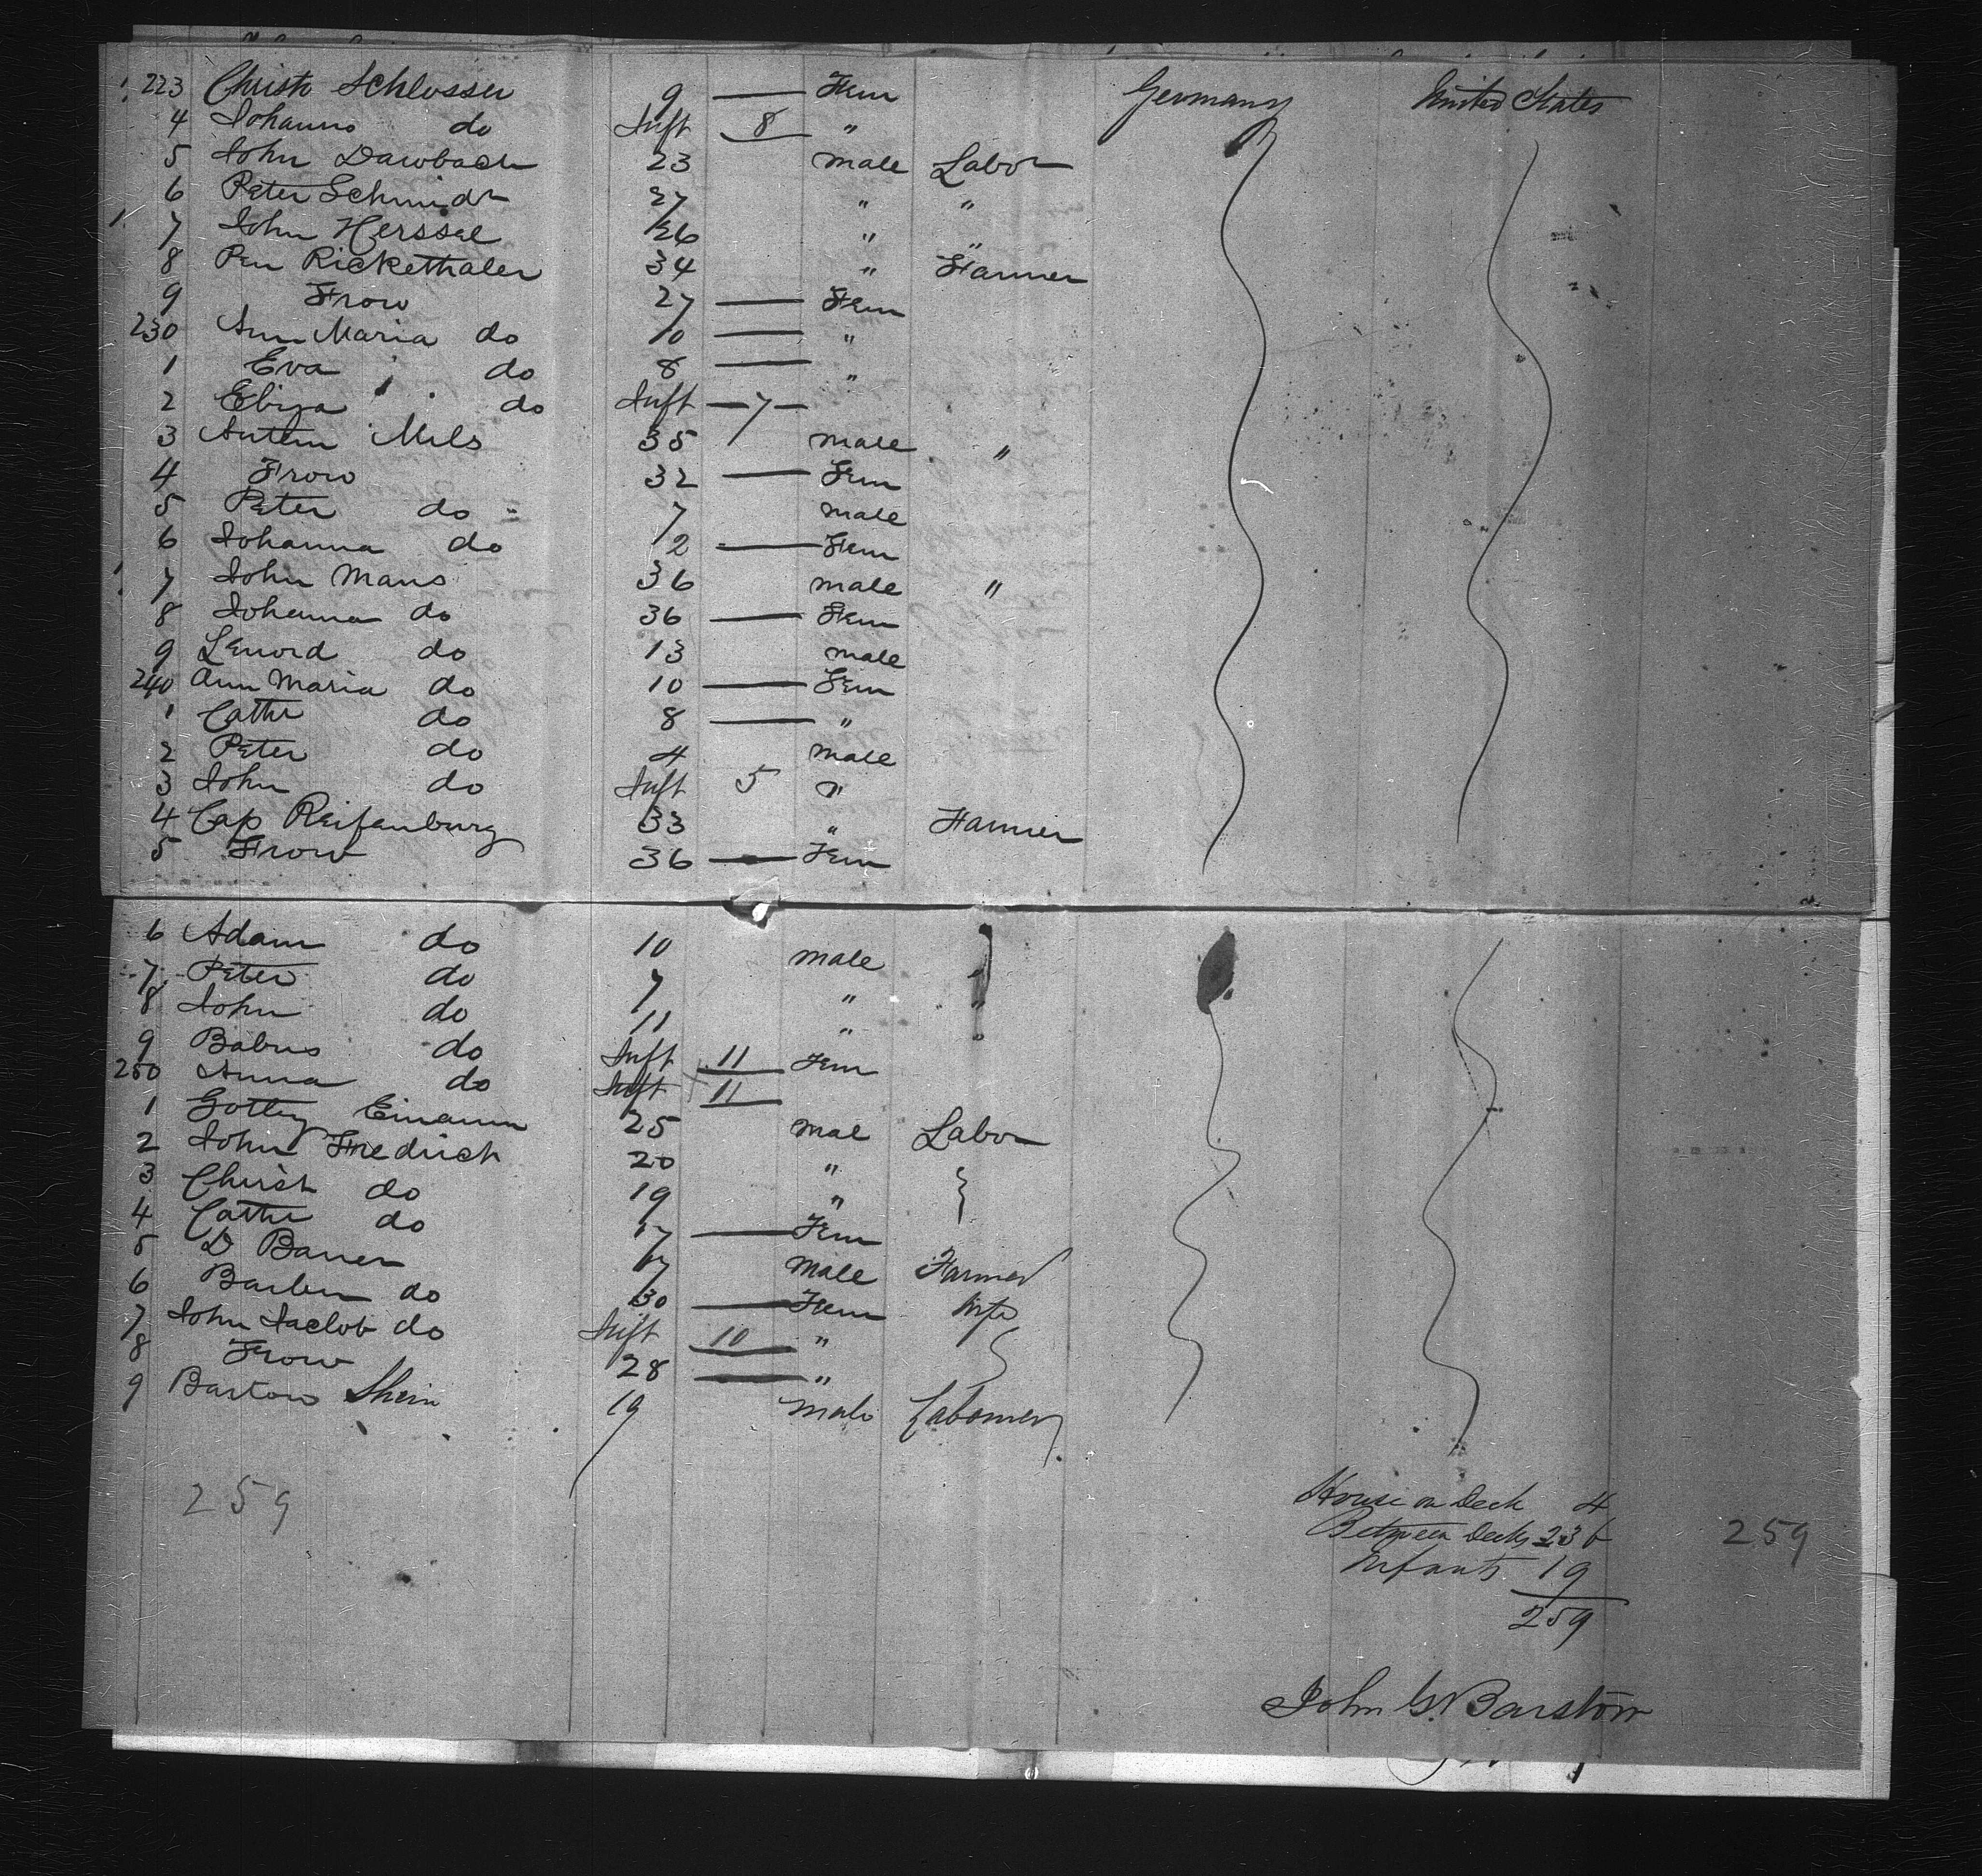 223 Christ Schlosser 9 — Fem Germany United States
4 Johanns do Inft 8 "
5 John Dawbach 23 male Labor
6 Peter Schmidt 27 " "
7 John Herssel 26 " "
8 Pen Rickethaler 34 " Farmer
9 Frow 27 — Fem
230 Ann Maria do 10 — "
1 Eva do 8 — "
2 Eliza do Inft — 7 —
3 Antem Mils 35 male "
4 Frow 32 — Fem
5 Peter do 7 male
6 Johanna do 2 — Fem
7 John Maus 36 male "
8 Johanna do 36 — Fem
9 Lenord do 13 male
240 Ann Maria do 10 — Fem
1 Cathe do 8 — "
2 Peter do 4 male
3 John do Inft 5 "
4 Cap Reifenburg 33 " Farmer
5 Frow 36 — Fem
6 Adam do 10 male
7 Peter do 7 " "
8 John do 11 " "
9 Babus do Inft 11 Fem
250 Anna do Inft 11
1 Gottey Einamn 25 mal Labor
2 John Fredrich 20 "
3 Christ do 19 "
4 Cathe do 17 — Fem
5 D Bauer 17 male Farmer
6 do 30 — Fem
7 John Jaclob do Inft 10 "
8 Frow 28 — "
9 Bartow Shein 19 male Labourer
259
House on Deck 4
Between Decks 236
Infants 19
259
259
John G. Barstow